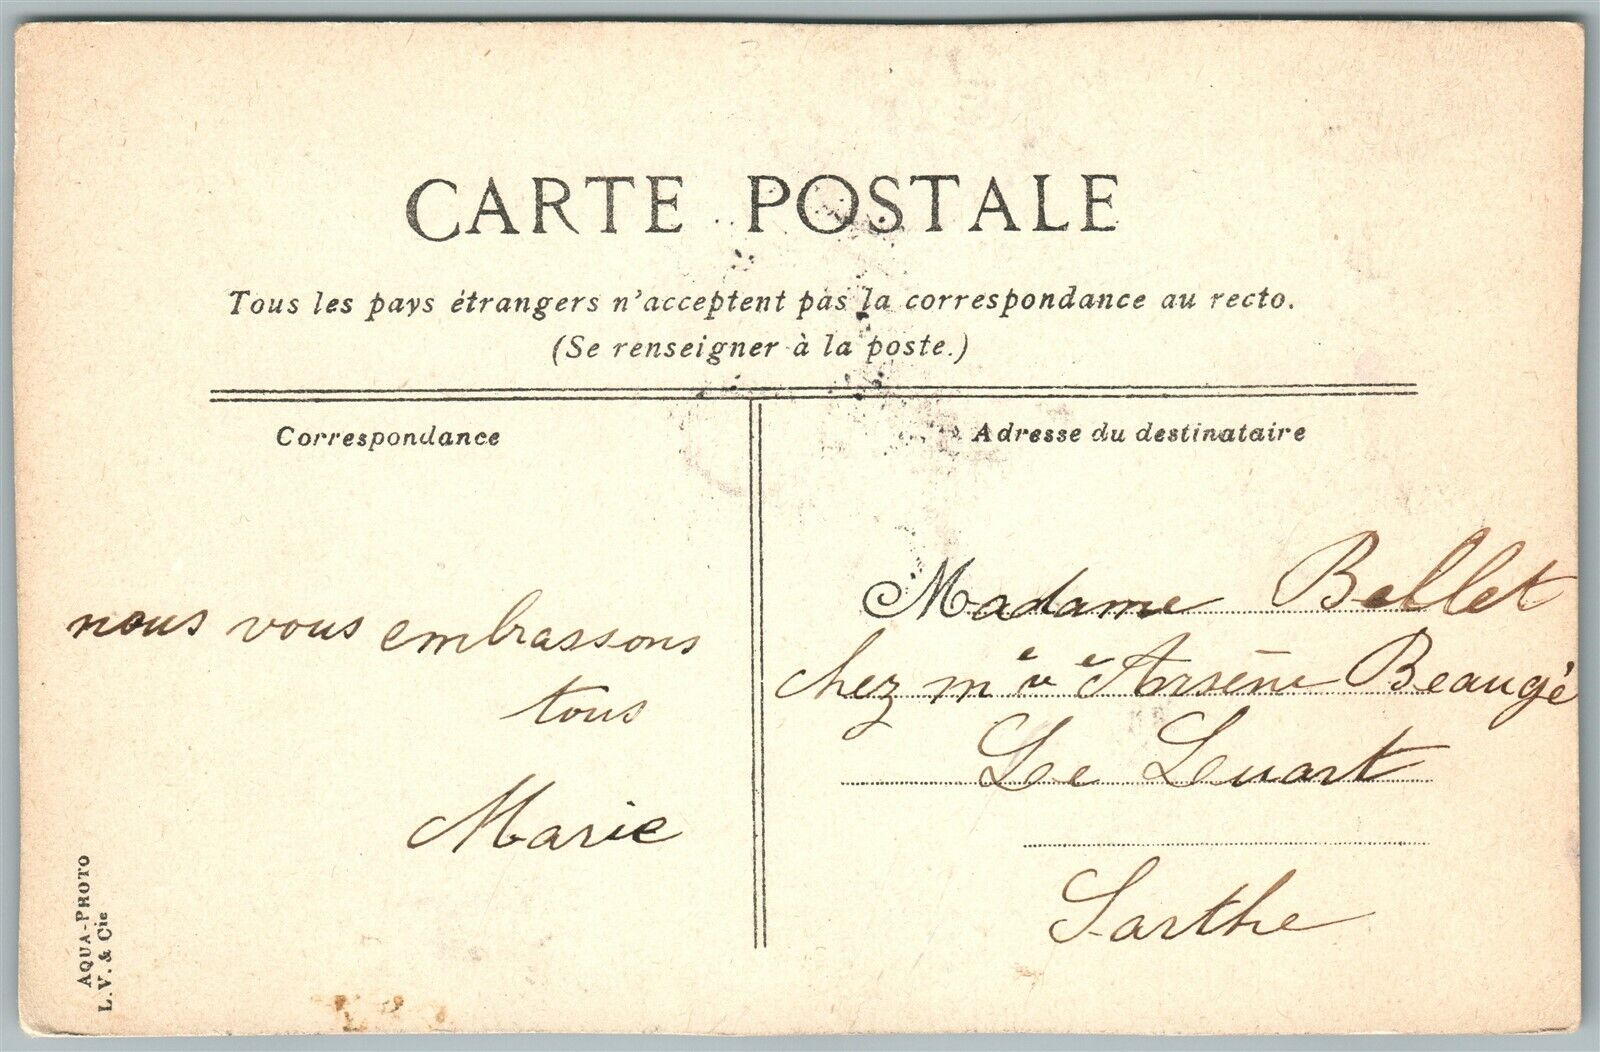 CARTE POSTALE
Tous les pays étrangers n'acceptent pas la correspondance au recto.
(Se renseigner à la poste.)
Correspondance
nous vous embrassons
tous
Marie
Adresse du destinataire
Madame Bellet
chez me ve Arsène Beaugé
Le Luart
Sarthe
AQUA-PHOTO
L. V. & Cie